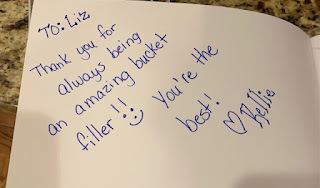 To: Liz
Thank you for
always being
an amazing bucket
filler!! You're the
best!
Kellie